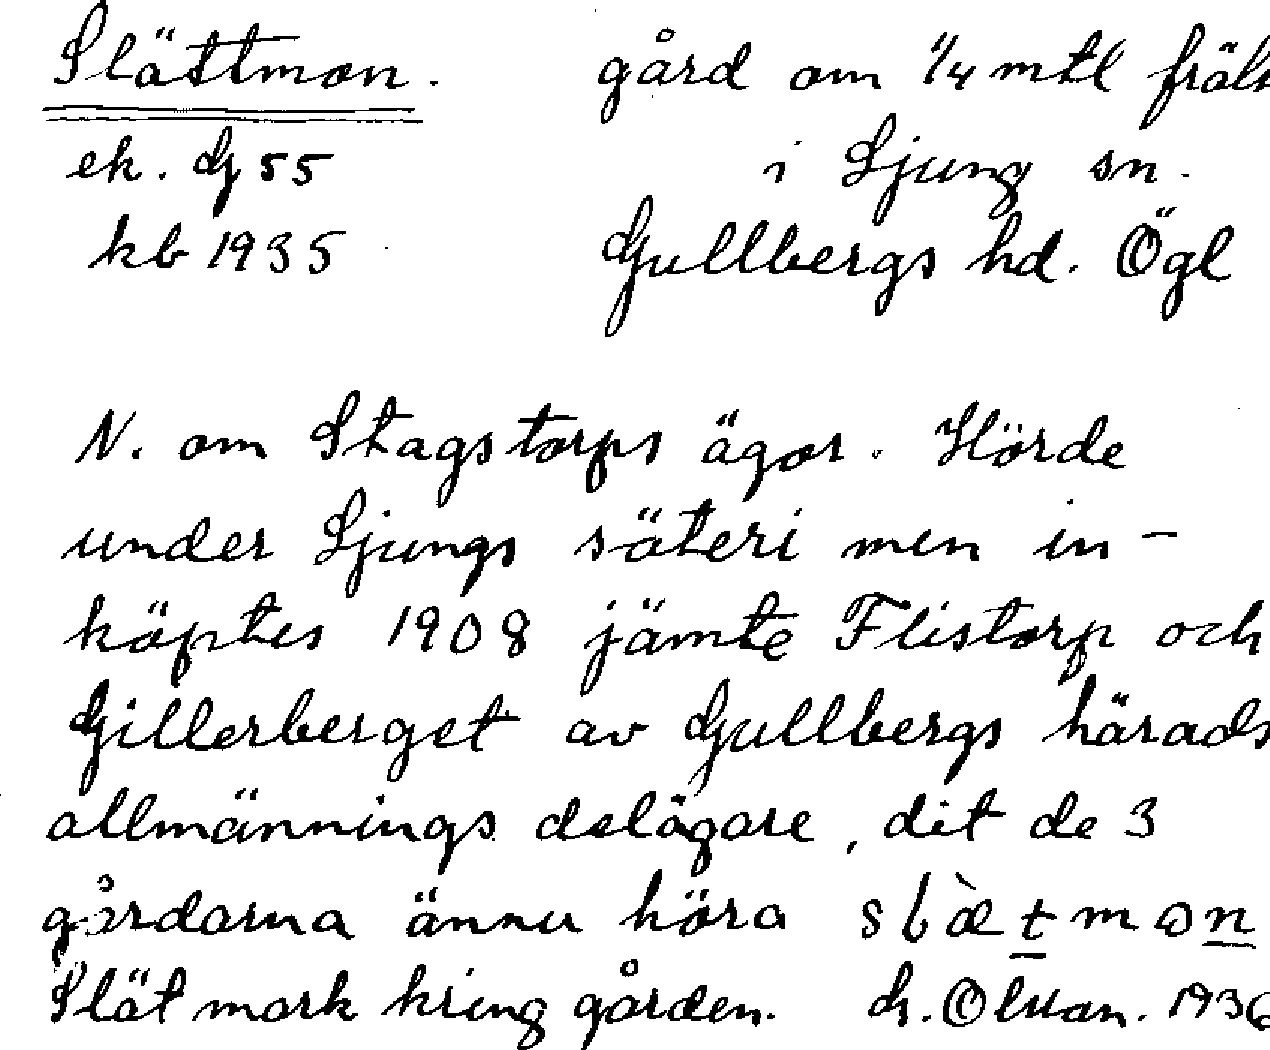 Slättmon. gård om 1/4 mtl fräls
ek. G 55 i Ljung sn.
kb 1935 Gullbergs hd. Ögl
N. om Stagstorps ägor. Hörde
under Ljungs säteri men in-
köptes 1908 jämte Flistorp och
Gillerberget av Gullbergs härads
allmännings delägare, dit de 3
gårdarna ännu höra
Slät mark kring gården. 1936